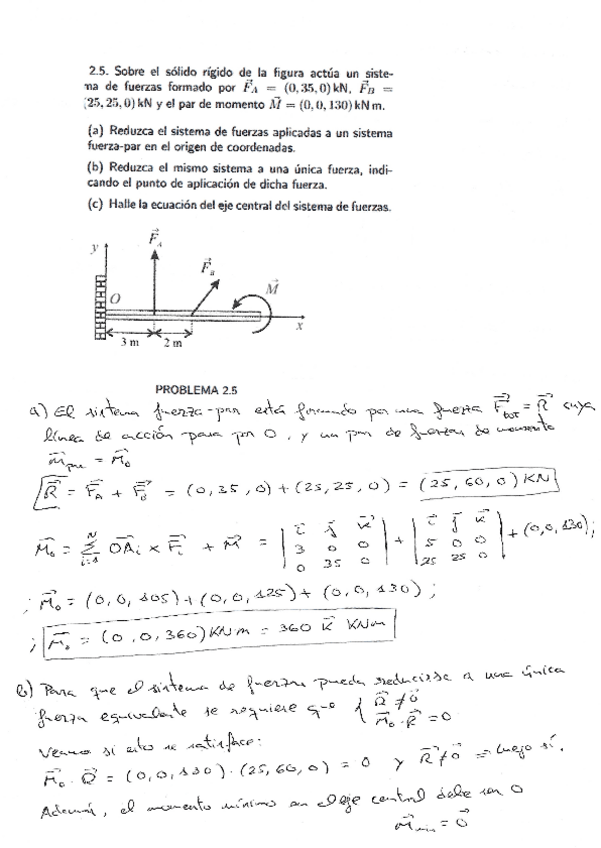 2.5. Sobre el sólido rígido de la figura actúa un siste-
ma de fuerzas formado por F⃗_A = (0, 35, 0) kN, F⃗_B =
(25, 25, 0) kN y el par de momento M⃗ = (0, 0, 130) kN m.
(a) Reduzca el sistema de fuerzas aplicadas a un sistema
fuerza-par en el origen de coordenadas.
(b) Reduzca el mismo sistema a una única fuerza, indi-
cando el punto de aplicación de dicha fuerza.
(c) Halle la ecuación del eje central del sistema de fuerzas.
y F⃗_A F⃗_B M⃗
O x
3 m 2 m
PROBLEMA 2.5
a) El sistema fuerza-par está formado por una fuerza F⃗_tot = R⃗ cuya
línea de acción pasa por O, y un par de fuerzas de momento
m⃗_par = M⃗_0
R⃗ = F⃗_A + F⃗_B = (0,35,0)+(25,25,0) = (25,60,0) KN
M⃗_0 = Σ_{i=1}^{N} OA⃗_i × F⃗_i + M⃗ = | i⃗ j⃗ k⃗ ; 3 0 0 ; 0 35 0 | + | i⃗ j⃗ k⃗ ; 5 0 0 ; 25 25 0 | + (0,0,130);
; M⃗_0 = (0,0,105)+(0,0,125)+(0,0,130);
; M⃗_0 = (0,0,360) KN·m = 360 k⃗ KNm
b) Para que el sistema de fuerzas pueda reducirse a una única
fuerza equivalente se requiere que { R⃗ ≠ 0⃗
M⃗_0 · R⃗ = 0
Veamos si esto se satisface:
M⃗_0 · R⃗ = (0,0,130)·(25,60,0) = 0 y R⃗ ≠ 0⃗ = luego sí.
Además, el momento mínimo en el eje central debe ser 0
M⃗_min = 0⃗